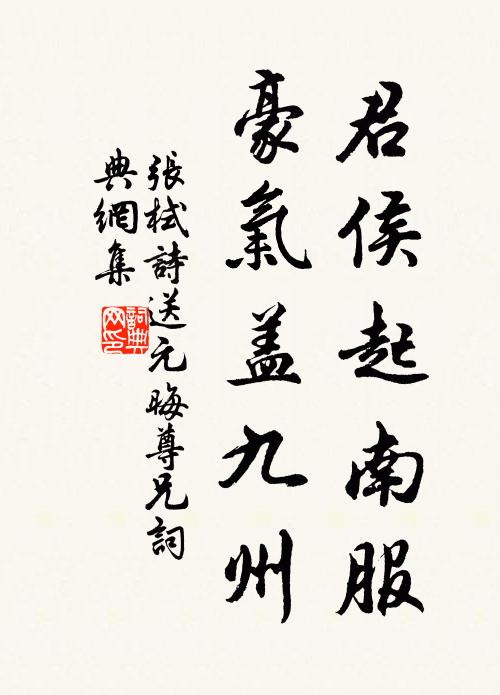 君侯起南服
豪氣盖九州
張栻詩送元晦尊兄詞
典網集
詞典
网印